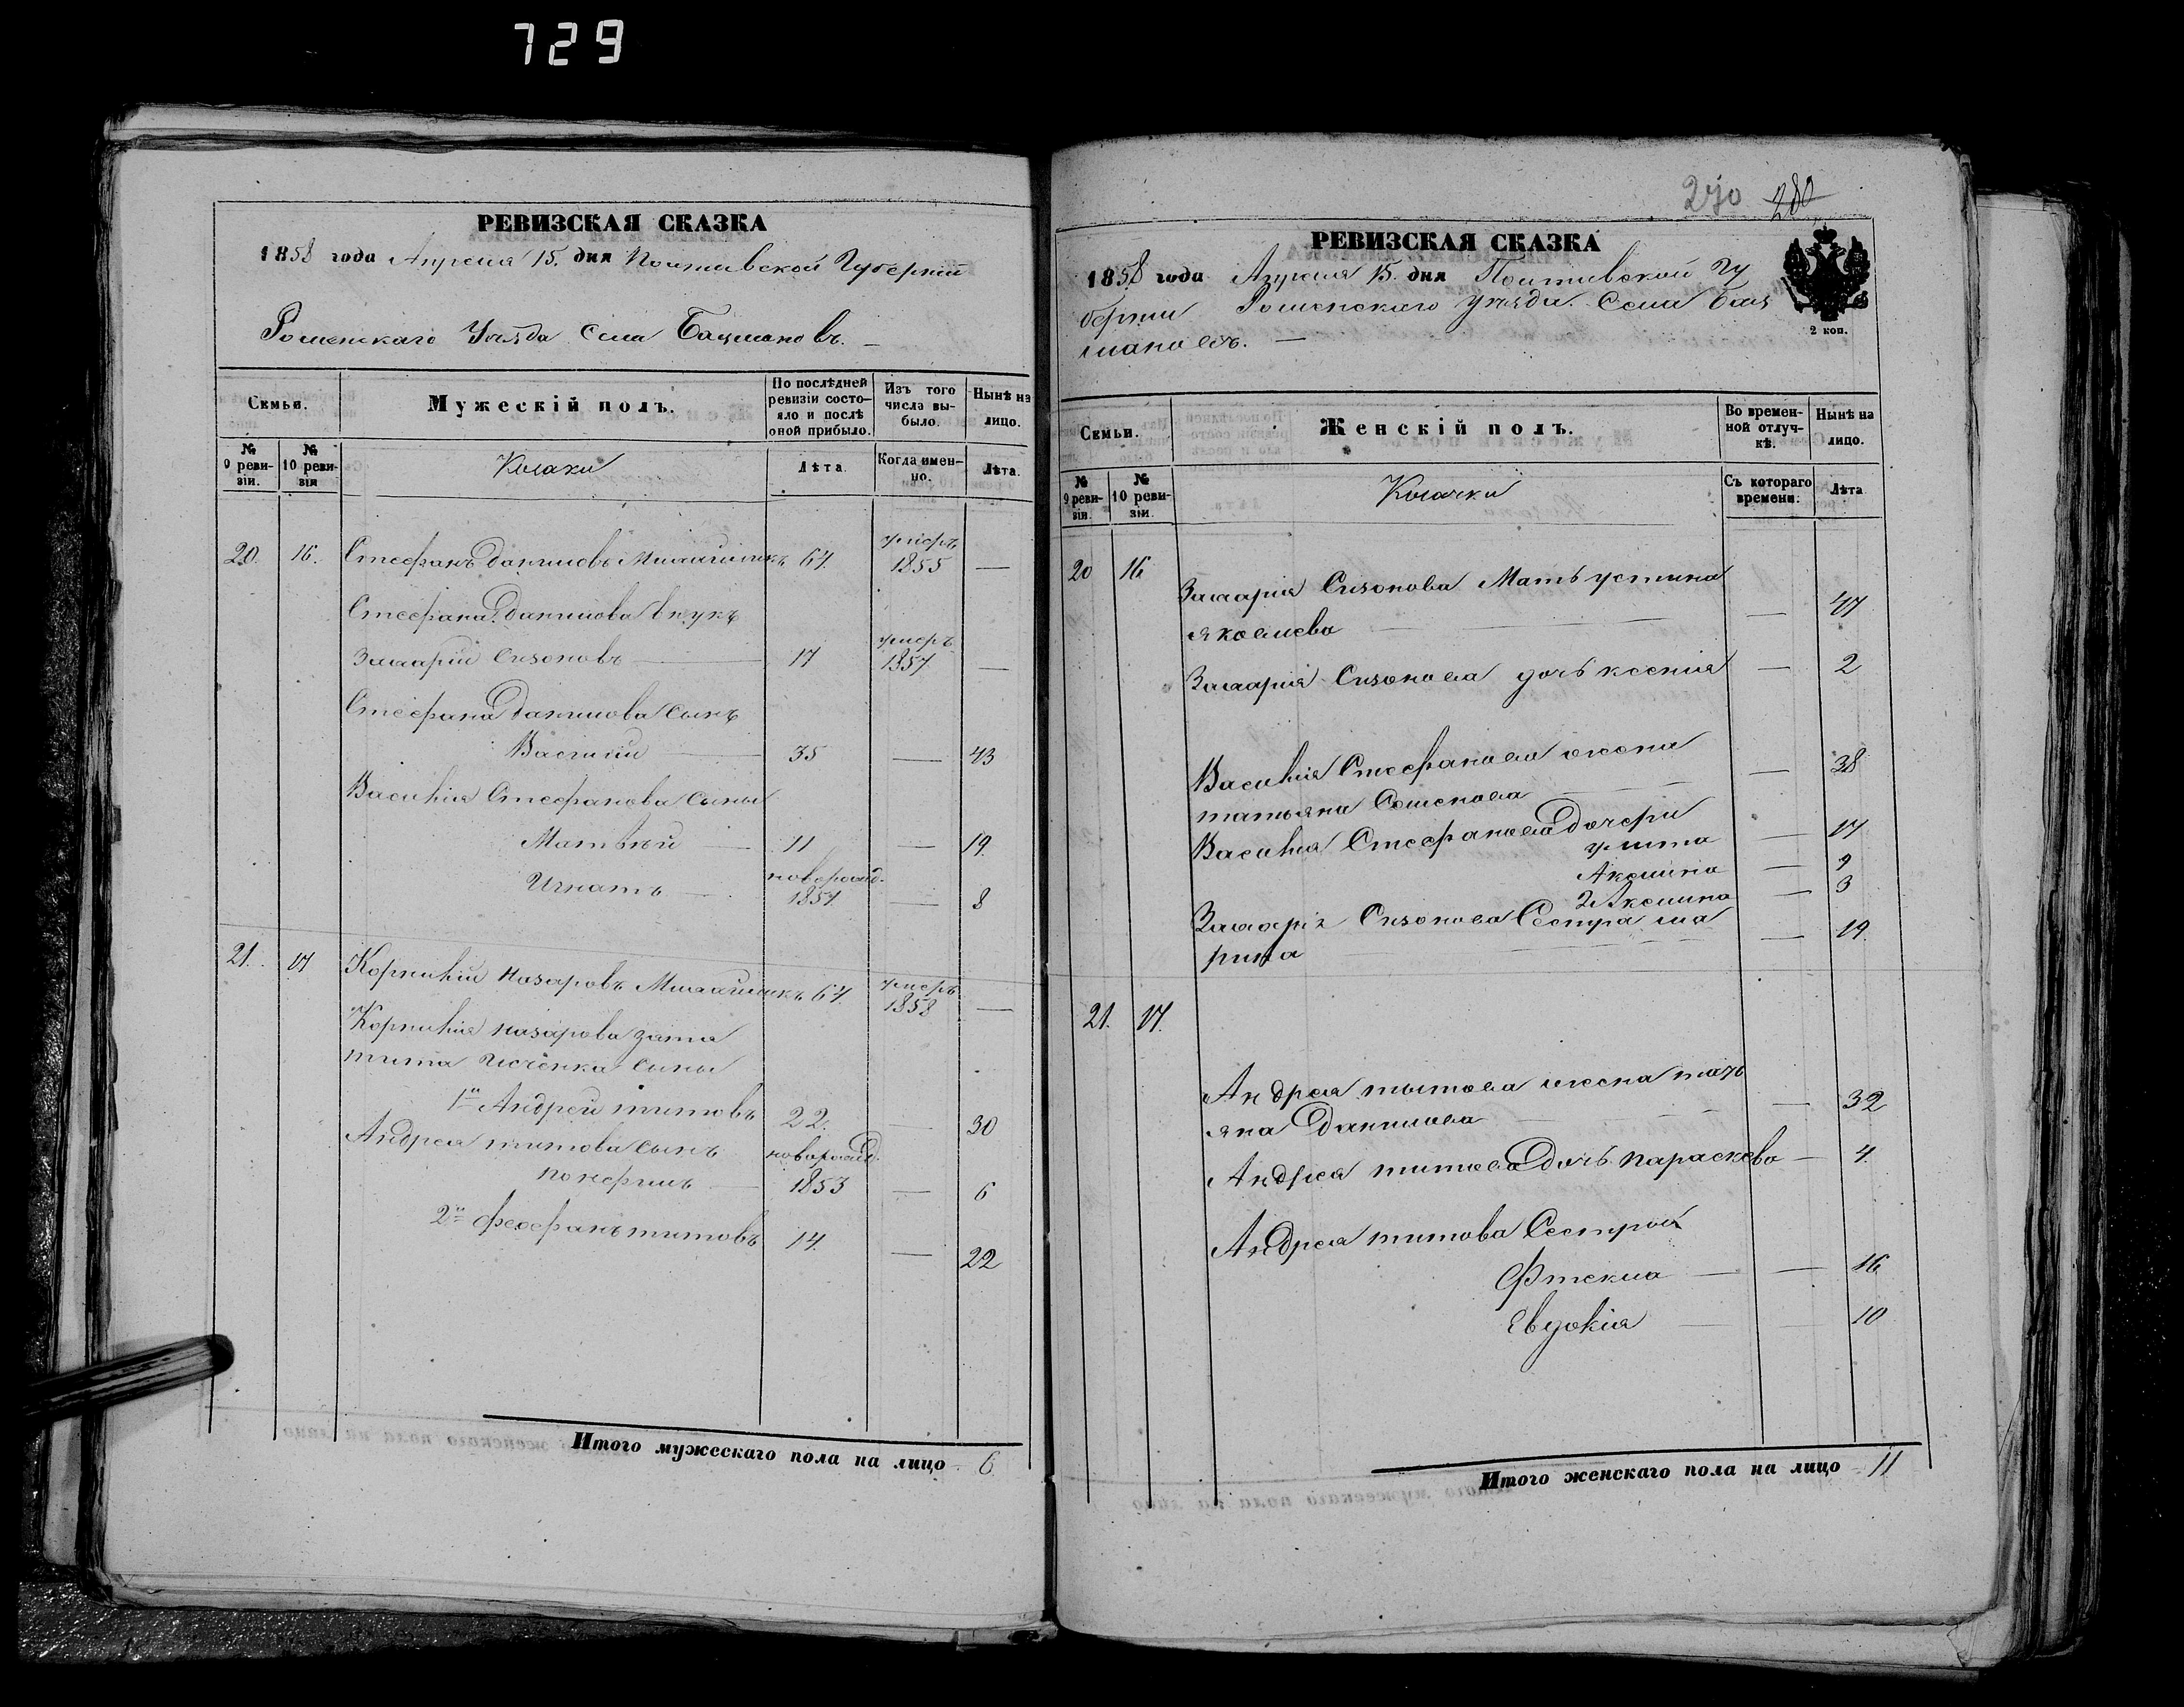 729
РЕВИЗСКАЯ СКАЗКА
1858 года Апреля 15. дня Полтавской Губернии
Роменскаго Уезда Села Бацманов
Семьи.
Мужескій полъ.
По послѣдней ревизіи состояло и послѣ оной прибыло.
Изъ того числа выбыло.
Нынѣ на лицо.
№ 9 ревизіи.
№ 10 ревизіи
Козаки
Лѣта.
Когда именно.
Лѣта.
20. 16. Стефанъ Даниловъ 67. умеръ 1855 —
Стефана Данилова внукъ
Захарій Сизоновъ — 17 умеръ 1857 —
Стефана Данилова сынъ
Василій — 35 — 43
Василія Стефанова сыны
Матвѣй — 11 — 19.
Игнатъ — новорожд. 1851 — 8
21. 17 Корнилій Назаровъ 67. умеръ 1858 —
Корнилія Назарова зятя
Тита сыны
1й Андрей Титовъ 22. — 30
Андрея Титова сынъ новорожд.
— 1853 — 6
2й Феофанъ Титовъ 14. — 22
Итого мужескаго пола на лицо 6.
280
РЕВИЗСКАЯ СКАЗКА
1858 года Апреля 15. дня Полтавской Гу
берніи Роменскаго уезда Села Бац
мановъ. —
2 коп.
Семьи.
Женскій полъ.
Во временной отлучкѣ.
Нынѣ на лицо.
№ 9 ревизіи.
№ 10 ревизіи.
Козачки
Съ котораго времени.
Лѣта
20 16 Захарія Сизонова Мать Устина
Яковлева — — 47
Захарія Сизонова дочь Ксенія — 2
Василія Стефанова жена
Татьяна Семенова — 38
Василія Стефанова Дочери
Улита — 17
Акулина — 9
2 Акулина — 3
Захарія Сизонова Сестра Ма
рина — 19.
21. 17.
Андрея Титова жена Тать
яна Данилова — 32
Андрея Титова Дочь Параскева — 4.
Андрея Титова Сестры
Фтекла — — 16
Евдокія — — 10
Итого женскаго пола на лицо 11